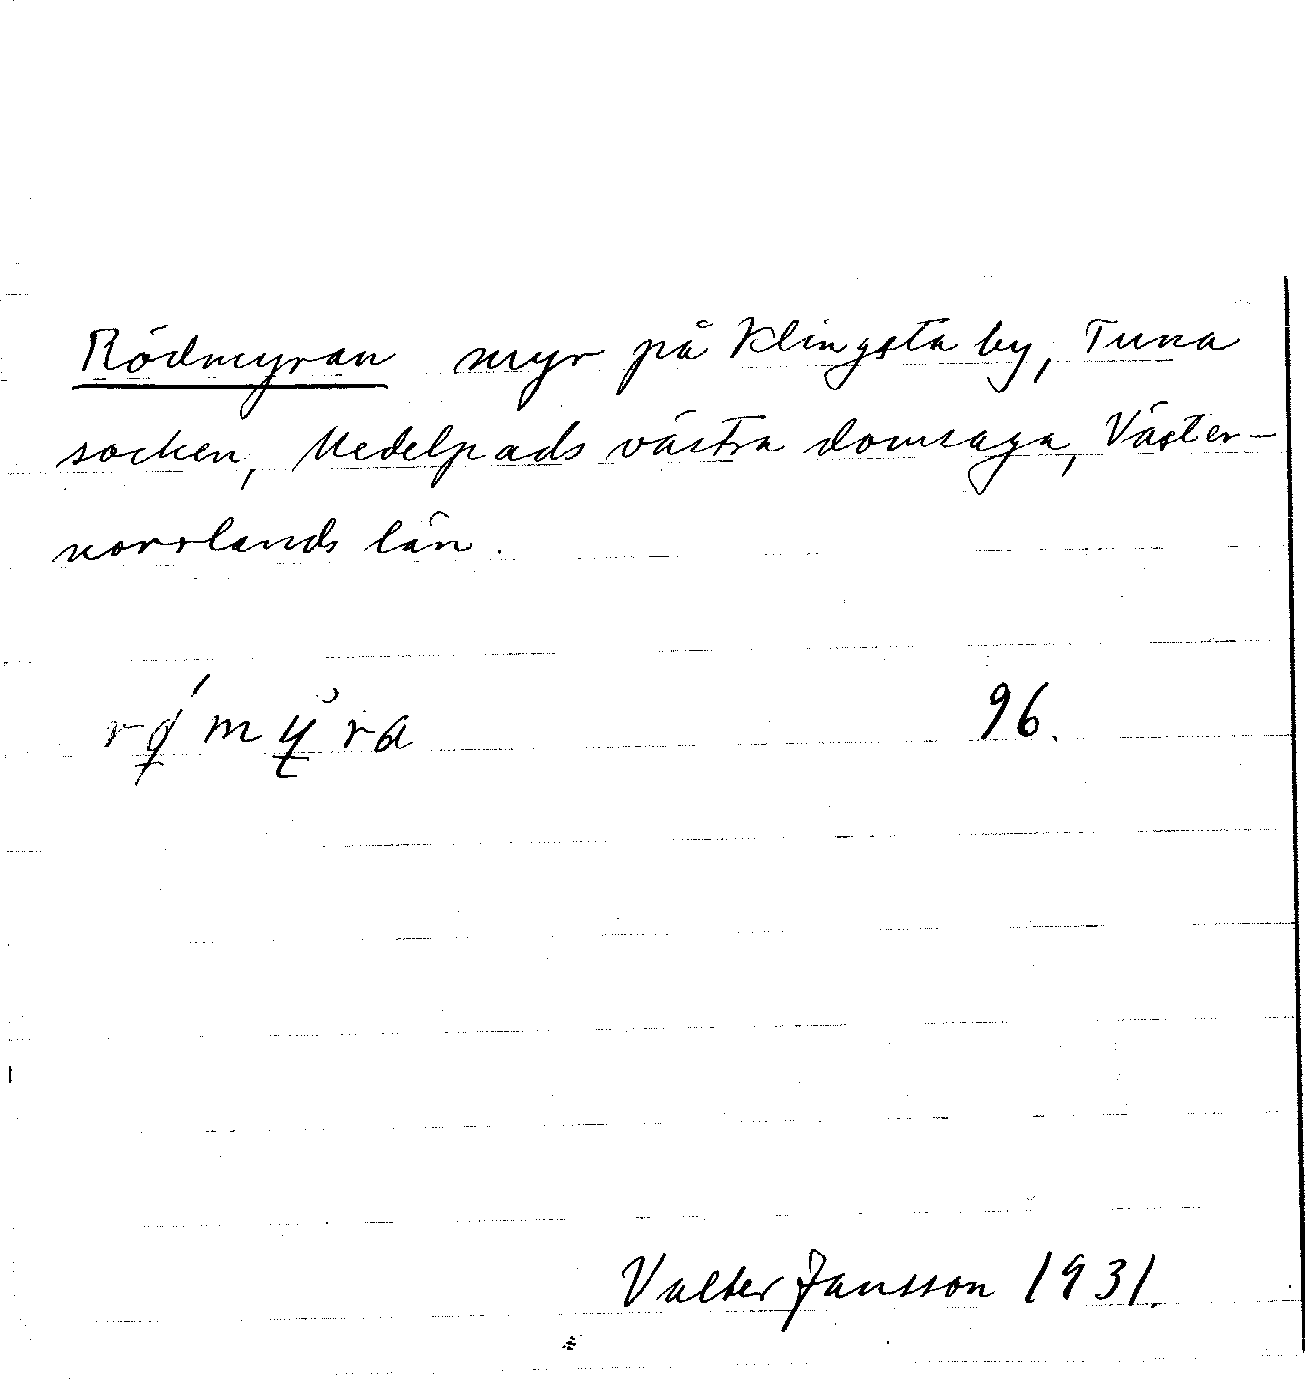 Rödmyran myr på Klingsta by, Tuna
socken, Medelpads västra domsaga, Väster-
norrlands län.
96.
Valter Jansson 1931.